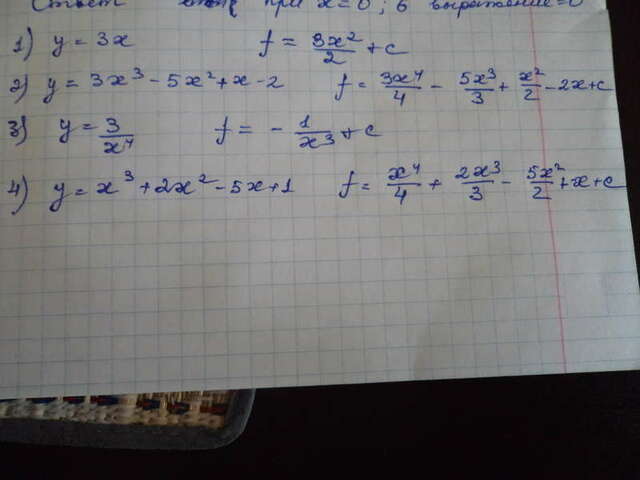 Ответ при x=0; 6 выражение=0
1) y = 3x f = 3x²/2 + c
2) y = 3x³ - 5x² + x - 2 f = 3x⁴/4 - 5x³/3 + x²/2 - 2x + c
3) y = 3/x⁴ f = - 1/x³ + c
4) y = x³ + 2x² - 5x + 1 f = x⁴/4 + 2x³/3 - 5x²/2 + x + c